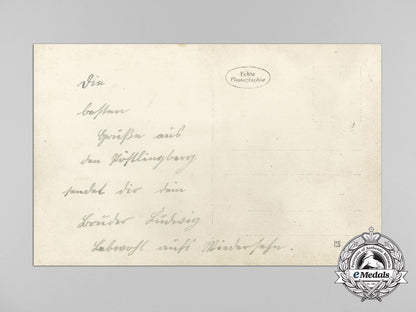 Die
besten
Grüße aus
den Pöstlingberg
sendet dir dein
Bruder Ludwig
Lebwohl aufs Wiedersehn.
Echte
Photographie
eMedals